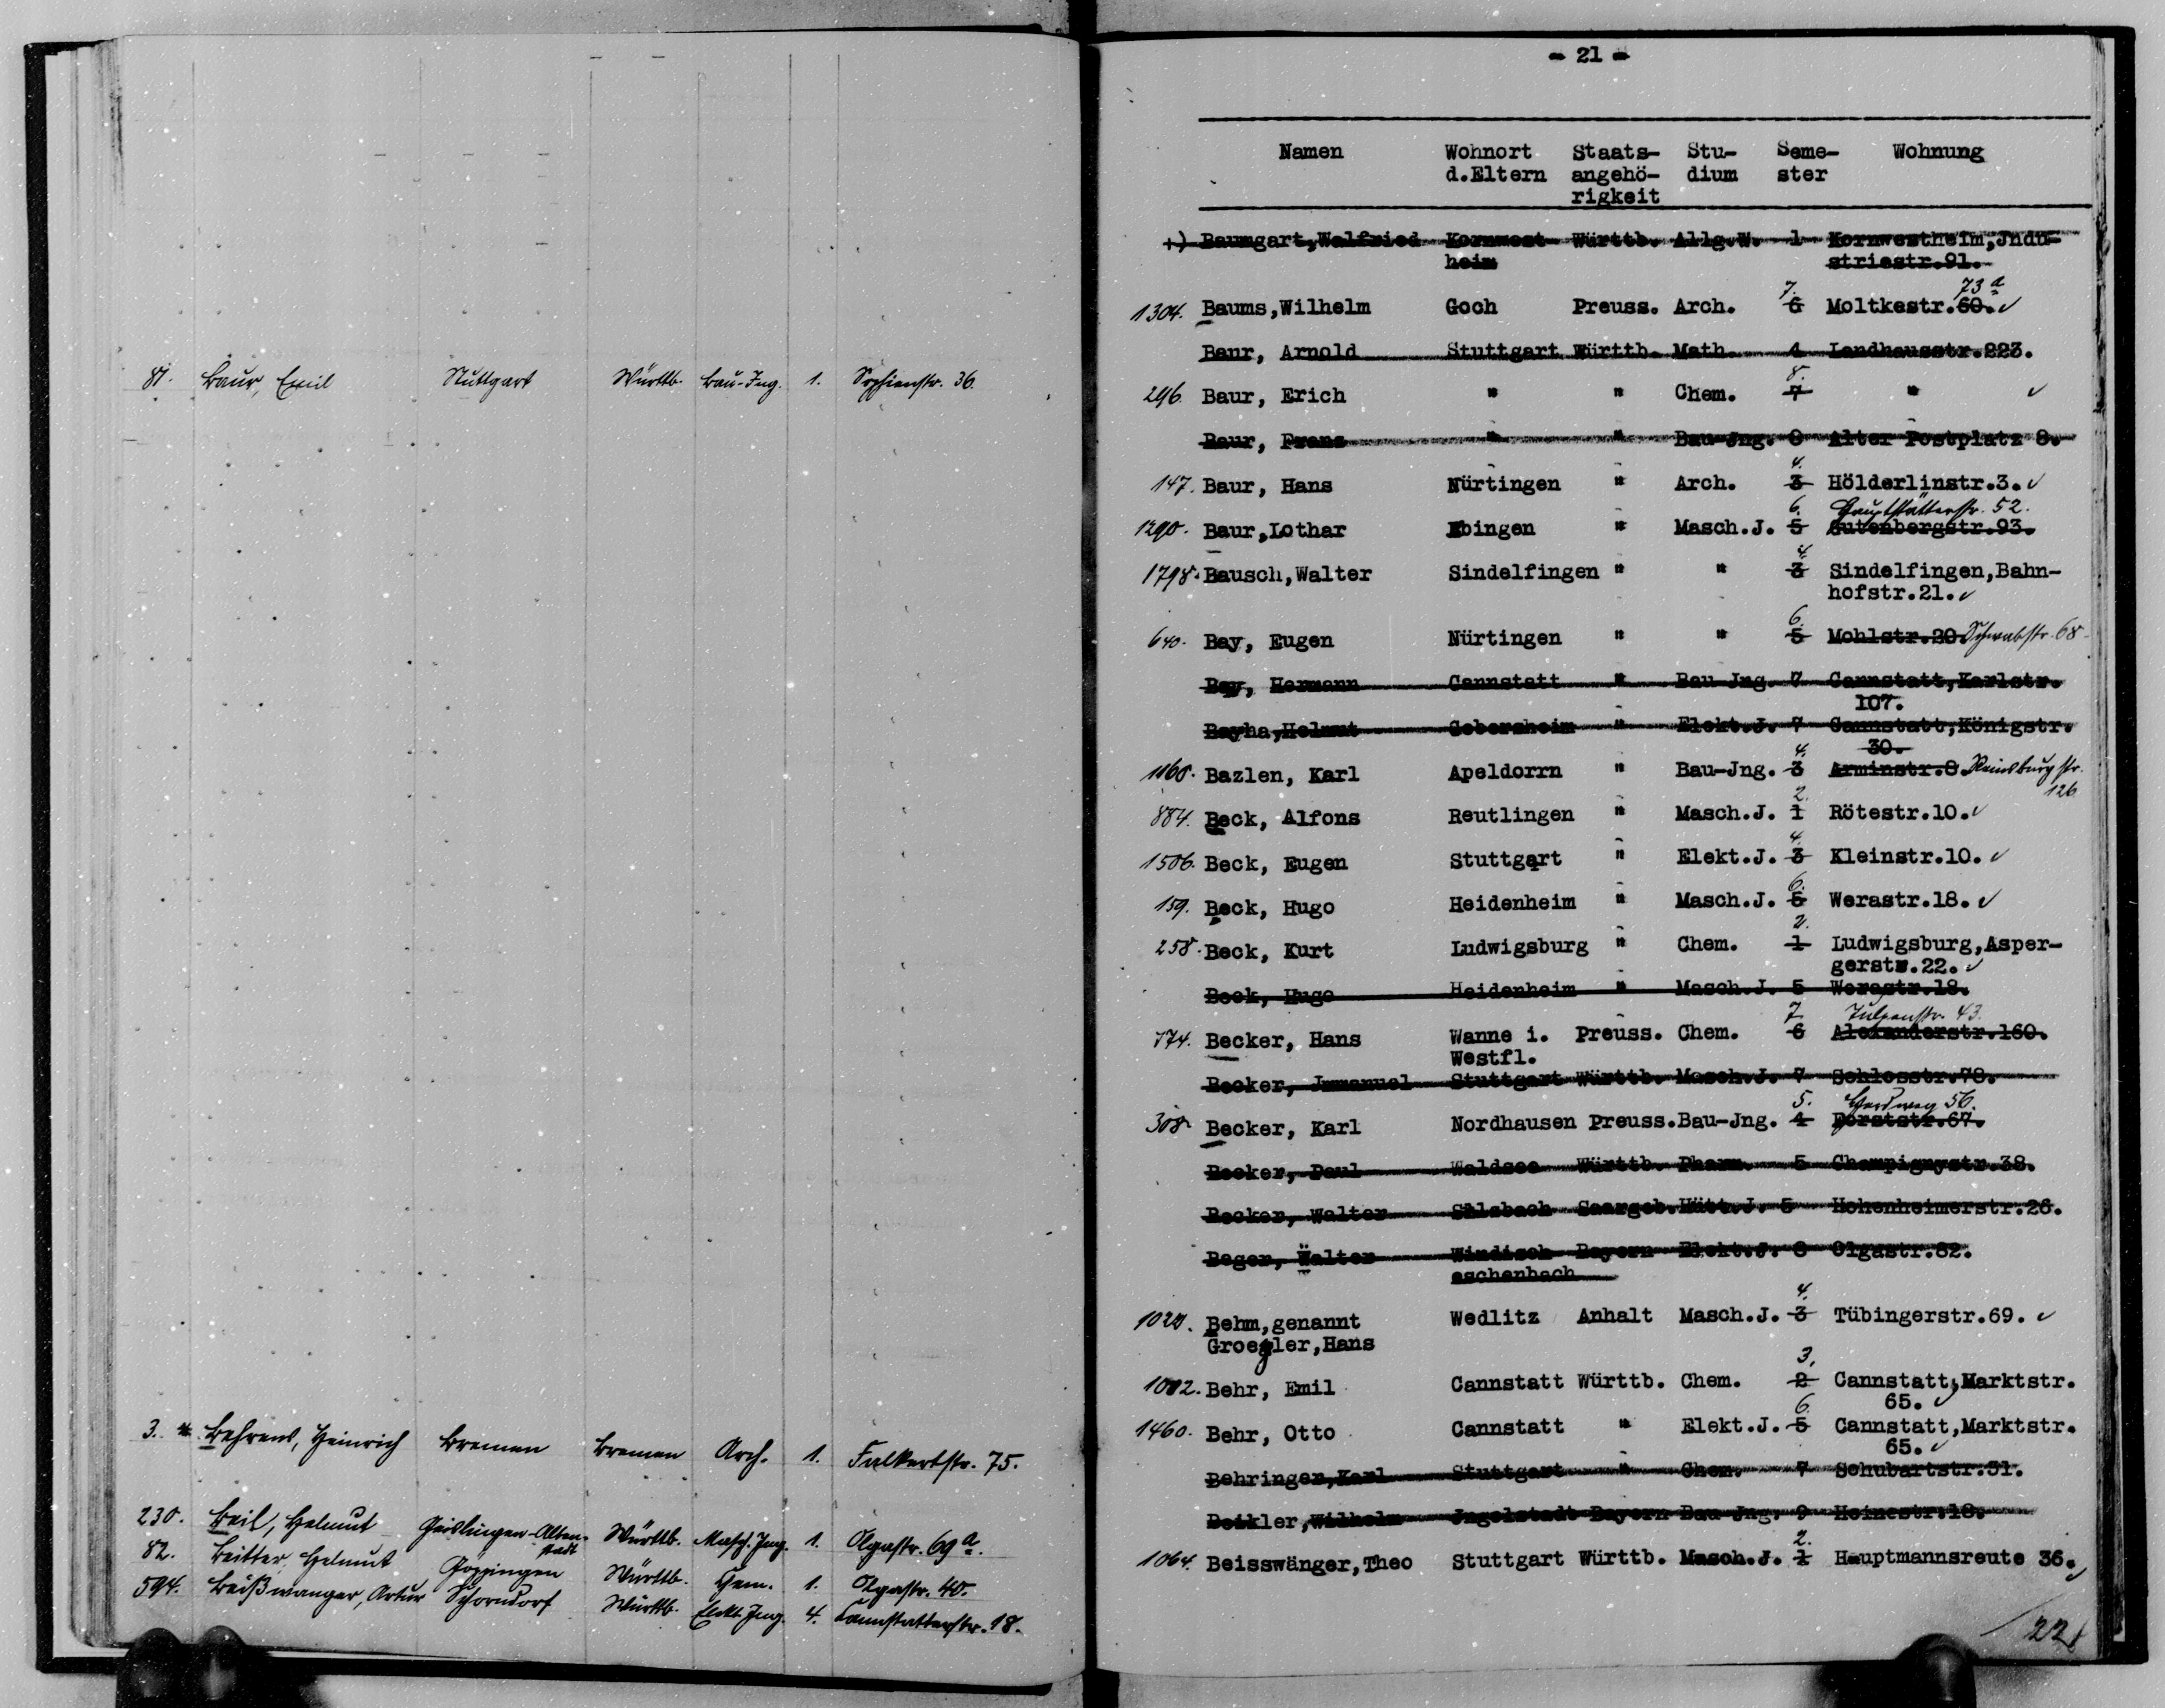 81. Baur, Emil Stuttgart Württb. Bau-Ing. 1. Sophienstr. 36.
3. Behrens, Heinrich Bremen Bremen Arch. 1. Falkertstr. 75.
230. Beil, Helmut Geislingen-Alten- Württb. Masch. Ing. 1. Olgastr. 69a.
stadt
82. Beitter, Helmut Göppingen Württb. Chem. 1. Olgastr. 40.
594. Beißwanger, Artur Schorndorf Württb. Elekt. Ing. 4. Cannstatterstr. 18.
- 21 -
Namen Wohnort Staats- Stu- Seme- Wohnung
d.Eltern angehö- dium ster
rigkeit
+) Baumgart,Walfried Kornwest- Württb. Allg.W. 1 Kornwestheim,Jndu-
heim striestr.91.
7. 73a
1304. Baums,Wilhelm Goch Preuss. Arch. 6 Moltkestr.60. ✓
Baur, Arnold Stuttgart Württb. Math. 4 Landhausstr.223.
8.
296. Baur, Erich " " Chem. 7 " ✓
Baur, Franz " " Bau-Jng. Alter Postplatz 8.
4.
147. Baur, Hans Nürtingen " Arch. 3 Hölderlinstr.3. ✓
6. Hauptstätterstr. 52.
1290. Baur,Lothar Ebingen " Masch.J. 5 Gutenbergstr.93.
4.
1798. Bausch,Walter Sindelfingen " " 3 Sindelfingen,Bahn-
hofstr.21. ✓
6.
640. Bay, Eugen Nürtingen " " 5 Mohlstr.20. Schwabstr. 68.
Bay, Hermann Cannstatt " Bau Jng. 7 Cannstatt,Karlstr.
107.
Bayha,Helmut Gebersheim " Elekt.J. 7 Cannstatt,Königstr.
30.
4.
1168. Bazlen, Karl Apeldorrn " Bau-Jng. 3 Arminstr.8. Reinsburgstr.
126.
2.
884. Beck, Alfons Reutlingen " Masch.J. 1 Rötestr.10. ✓
4.
1506. Beck, Eugen Stuttgart " Elekt.J. 3 Kleinstr.10. ✓
6.
159. Beck, Hugo Heidenheim " Masch.J. 5 Werastr.18. ✓
2.
258. Beck, Kurt Ludwigsburg " Chem. 1 Ludwigsburg,Asper-
gerstr.22. ✓
Beck, Hugo Heidenheim " Masch.J. 5 Werastr.18.
7. Tulpenstr. 43.
774. Becker, Hans Wanne i. Preuss. Chem. 6 Alexanderstr.160.
Westfl.
Becker, Jmmanuel Stuttgart Württb. Masch.J. 7 Schlosstr.78.
5. Herdweg 56.
308. Becker, Karl Nordhausen Preuss.Bau-Jng. 4 Forststr.67.
Becker, Paul Waldsee Württb. Pharm. 5 Champignystr.38.
Becker, Walter Sulzbach Saargeb.Hütt.J. 5 Hohenheimerstr.26.
Beger, Walter Windisch- Bayern Elekt.J. 8 Olgastr.82.
eschenbach
4.
Behm,genannt Wedlitz Anhalt Masch.J. 3 Tübingerstr.69. ✓
Groegler,Hans
3.
1012. Behr, Emil Cannstatt Württb. Chem. 2 Cannstatt,Marktstr.
65. ✓
6.
1460. Behr, Otto Cannstatt " Elekt.J. 5 Cannstatt,Marktstr.
65. ✓
Behringer,Karl Stuttgart " Chem. 7 Schubartstr.31.
Beikler,Wilhelm Jngolstadt Bayern Bau Jng. 9 Heinestr.18.
2.
1064. Beisswänger,Theo Stuttgart Württb. Masch.J. 1 Hauptmannsreute 36. ✓
22